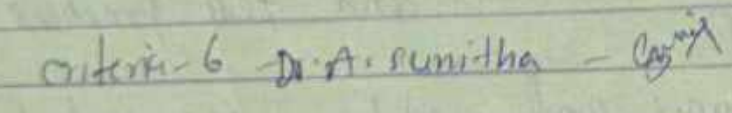 criteria-6 - Dr. A. sunitha -